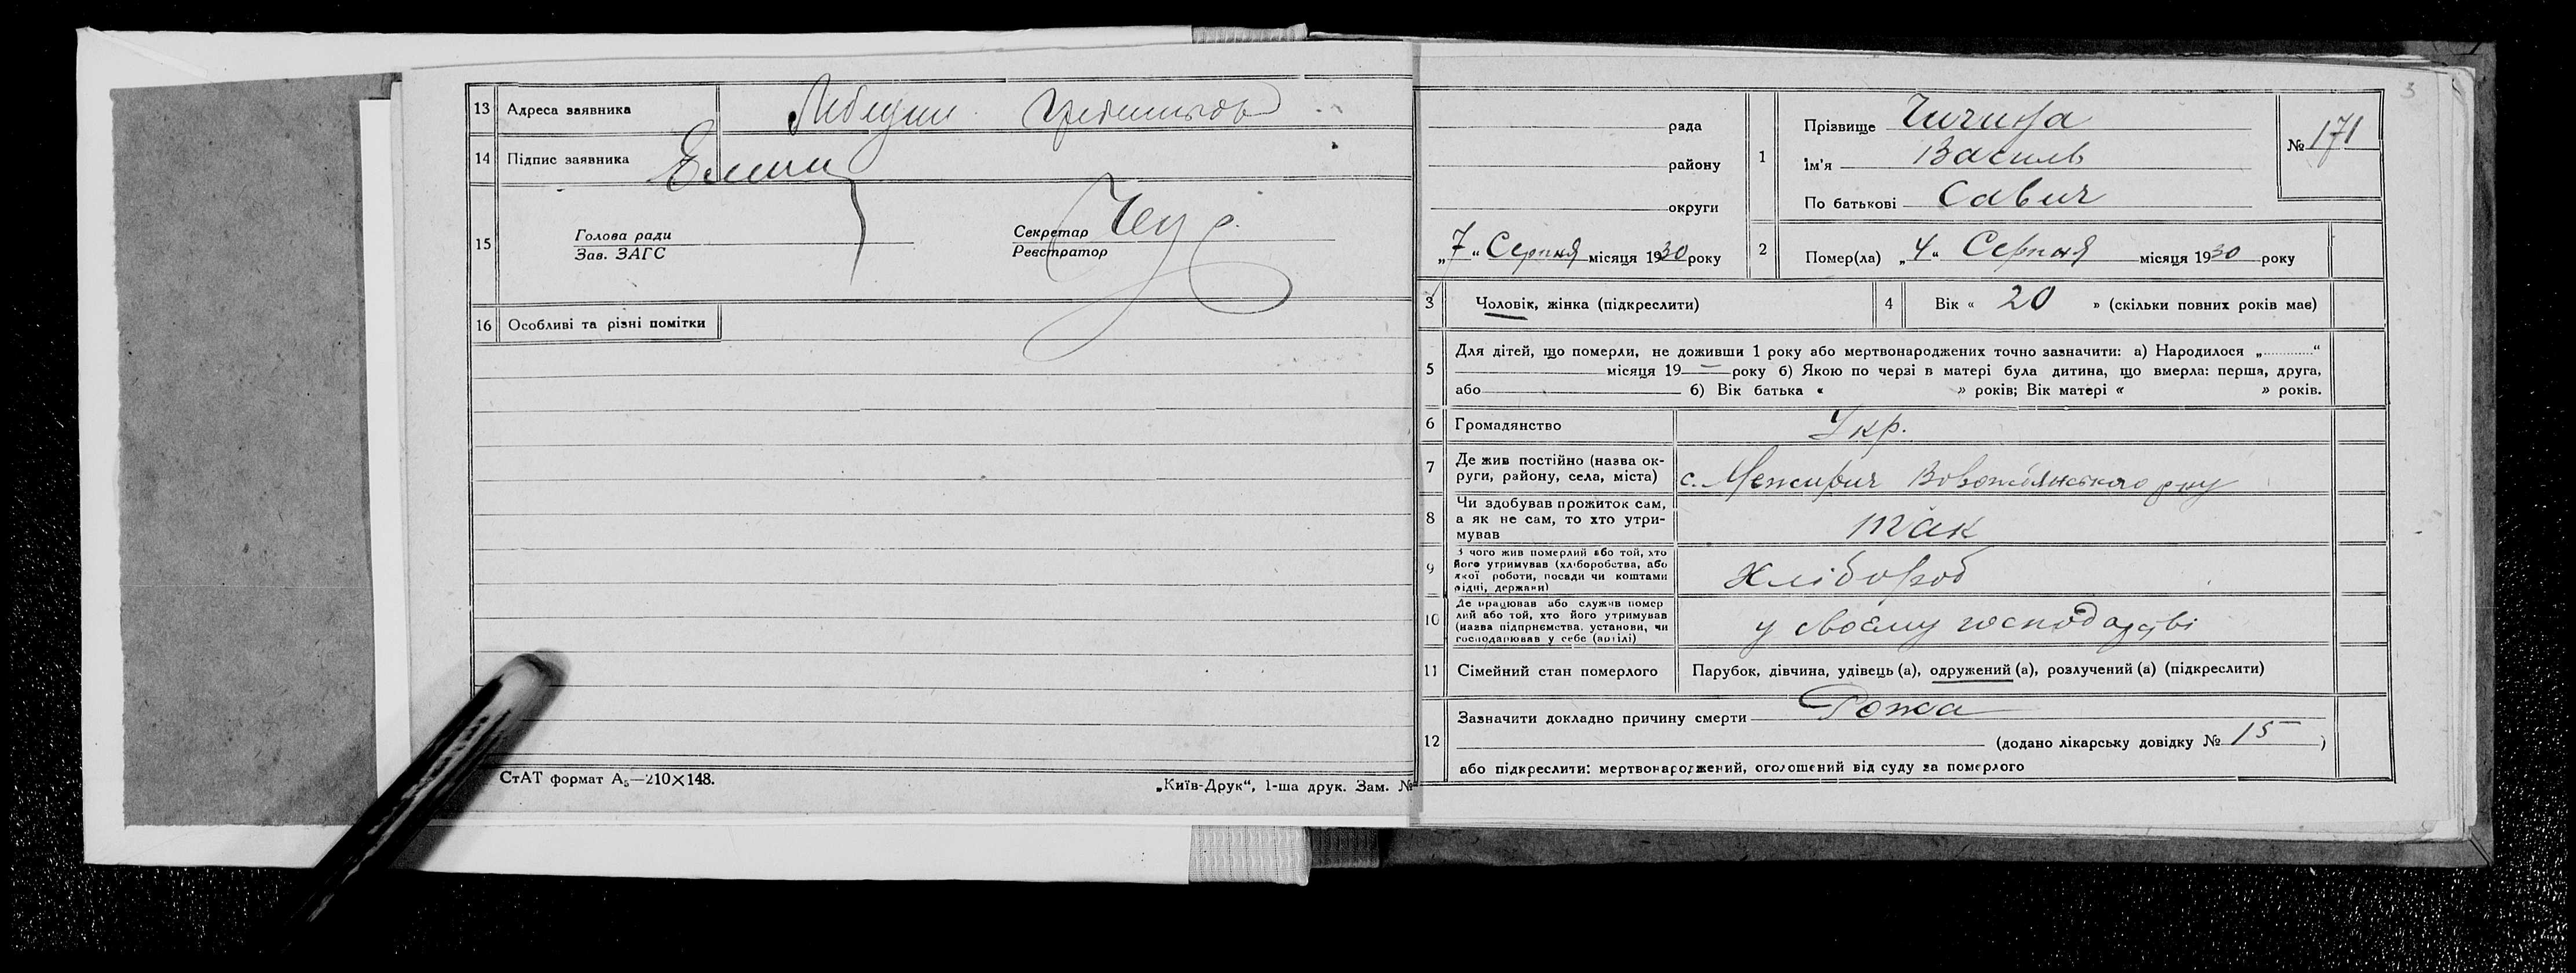 13 Адреса заявника Лебедин
14 Підпис заявника
15 Голова ради
Зав. ЗАГС
Секретар
Реєстратор
16 Особливі та різні помітки
СтАТ формат А₅—210×148.
„Київ-Друк“, 1-ша друк. Зам. №
3
рада
району
округи
„7“ Серпня місяця 1930 року
1 Прізвище
Ім'я Василь
По батькові Савич
№ 171
2 Помер(ла) „4“ Серпня місяця 1930 року
3 Чоловік, жінка (підкреслити)
4 Вік « 20 » (скільки повних років має)
5 Для дітей, що померли, не доживши 1 року або мертвонароджених точно зазначити: а) Народилося „ “
місяця 19— року б) Якою по черзі в матері була дитина, що вмерла: перша, друга,
або б) Вік батька « » років; Вік матері « » років.
6 Громадянство Укр.
7 Де жив постійно (назва ок-
руги, району, села, міста) с. Межирич
8 Чи здобував прожиток сам,
а як не сам, то хто утри-
мував так
9 З чого жив померлий або той, хто
його утримував (хліборобства, або
якої роботи, посади чи коштами
рідні, держави) Хлібороб
10 Де працював або служив помер
лий або той, хто його утримував
(назва підприємства, установи, чи
господарював у себе (артілі) у своєму господарстві
11 Сімейний стан померлого Парубок, дівчина, удівець (а), одружений (а), розлучений (а) (підкреслити)
12 Зазначити докладно причину смерти Рожа
(додано лікарську довідку № 15 )
або підкреслити: мертвонароджений, оголошений від суду за померлого